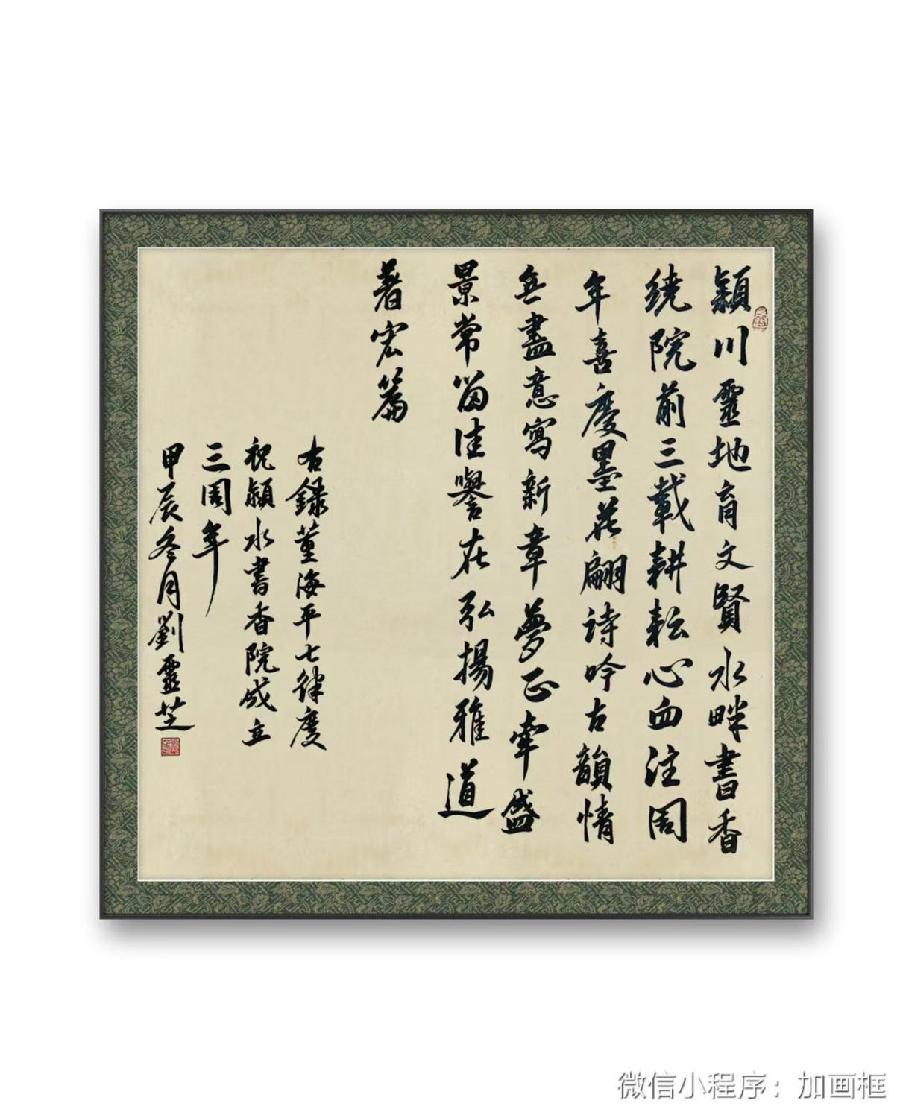 潁川靈地育文賢水畔書香
繞院前三載耕耘心血注周
年喜慶墨花翩詩吟古韻情
無盡意寫新章夢正牽盛
景常留佳譽在弘揚雅道
著宏篇
右錄董海平七律慶
祝潁水書香院成立
三周年
甲辰冬月劉靈芝
微信小程序：加画框